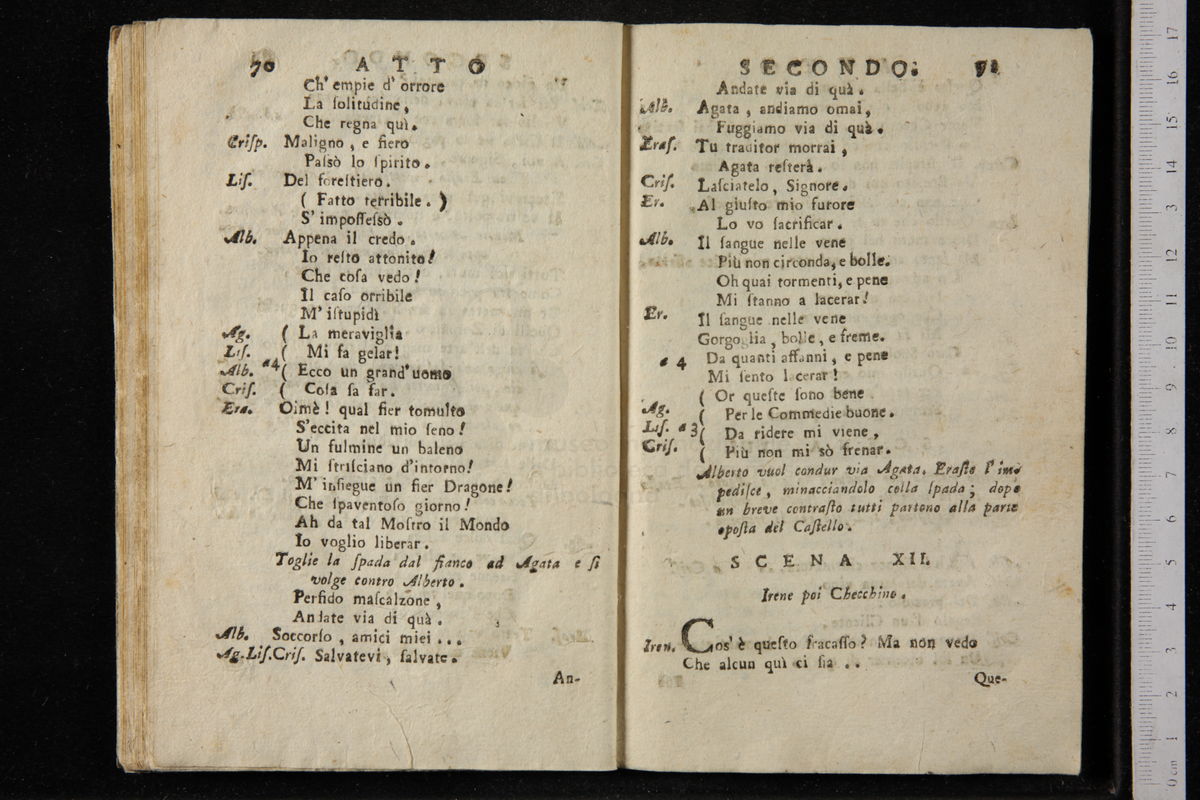 70 ATTO
Ch' empie d' orrore
La ſolitudine,
Che regna quì.
Criſp. Maligno, e fiero
Paſsò lo ſpirito.
Liſ. Del foreſtiero.
( Fatto terribile. )
S' impoſſeſsò.
Alb. Appena il credo.
Io reſto attonito!
Che coſa vedo!
Il caſo orribile
M' iſtupidì
Ag. ( La meraviglia
Liſ. ( Mi fa gelar!
Alb. a4 ( Ecco un grand' uomo
Criſ. ( Coſa ſa far.
Era. Oimè! qual fier tomulto
S'eccita nel mio ſeno!
Un fulmine un baleno
Mi ſtriſciano d'intorno!
M' inſiegue un fier Dragone!
Che ſpaventoſo giorno!
Ah da tal Moſtro il Mondo
Io voglio liberar.
Toglie la ſpada dal fianco ad Agata e ſi
volge contro Alberto.
Perfido maſcalzone,
Andate via di quà.
Alb. Soccorſo, amici miei ...
Ag. Liſ. Criſ. Salvatevi, ſalvate.
An-
SECONDO. 71
Andate via di quà.
Alb. Agata, andiamo omai,
Fuggiamo via di quà.
Eraſ. Tu traditor morrai,
Agata reſterà.
Criſ. Laſciatelo, Signore.
Er. Al giuſto mio furore
Lo vo ſacrificar.
Alb. Il ſangue nelle vene
Più non circonda, e bolle.
Oh quai tormenti, e pene
Mi ſtanno a lacerar!
Er. Il ſangue nelle vene
Gorgoglia, bolle, e freme.
a 4 Da quanti affanni, e pene
Mi ſento lacerar!
( Or queſte ſono bene
Ag. ( Per le Commedie buone.
Liſ. a 3 ( Da ridere mi viene,
Criſ. ( Più non mi sò frenar.
Alberto vuol condur via Agata. Eraſto l' im-
pediſce, minacciandolo colla ſpada; dopo
un breve contraſto tutti partono alla parte
opoſta del Caſtello.
SCENA XII.
Irene poi Checchino.
Iren. Cos' è queſto fracaſſo? Ma non vedo
Che alcun quì ci ſia ..
Que-